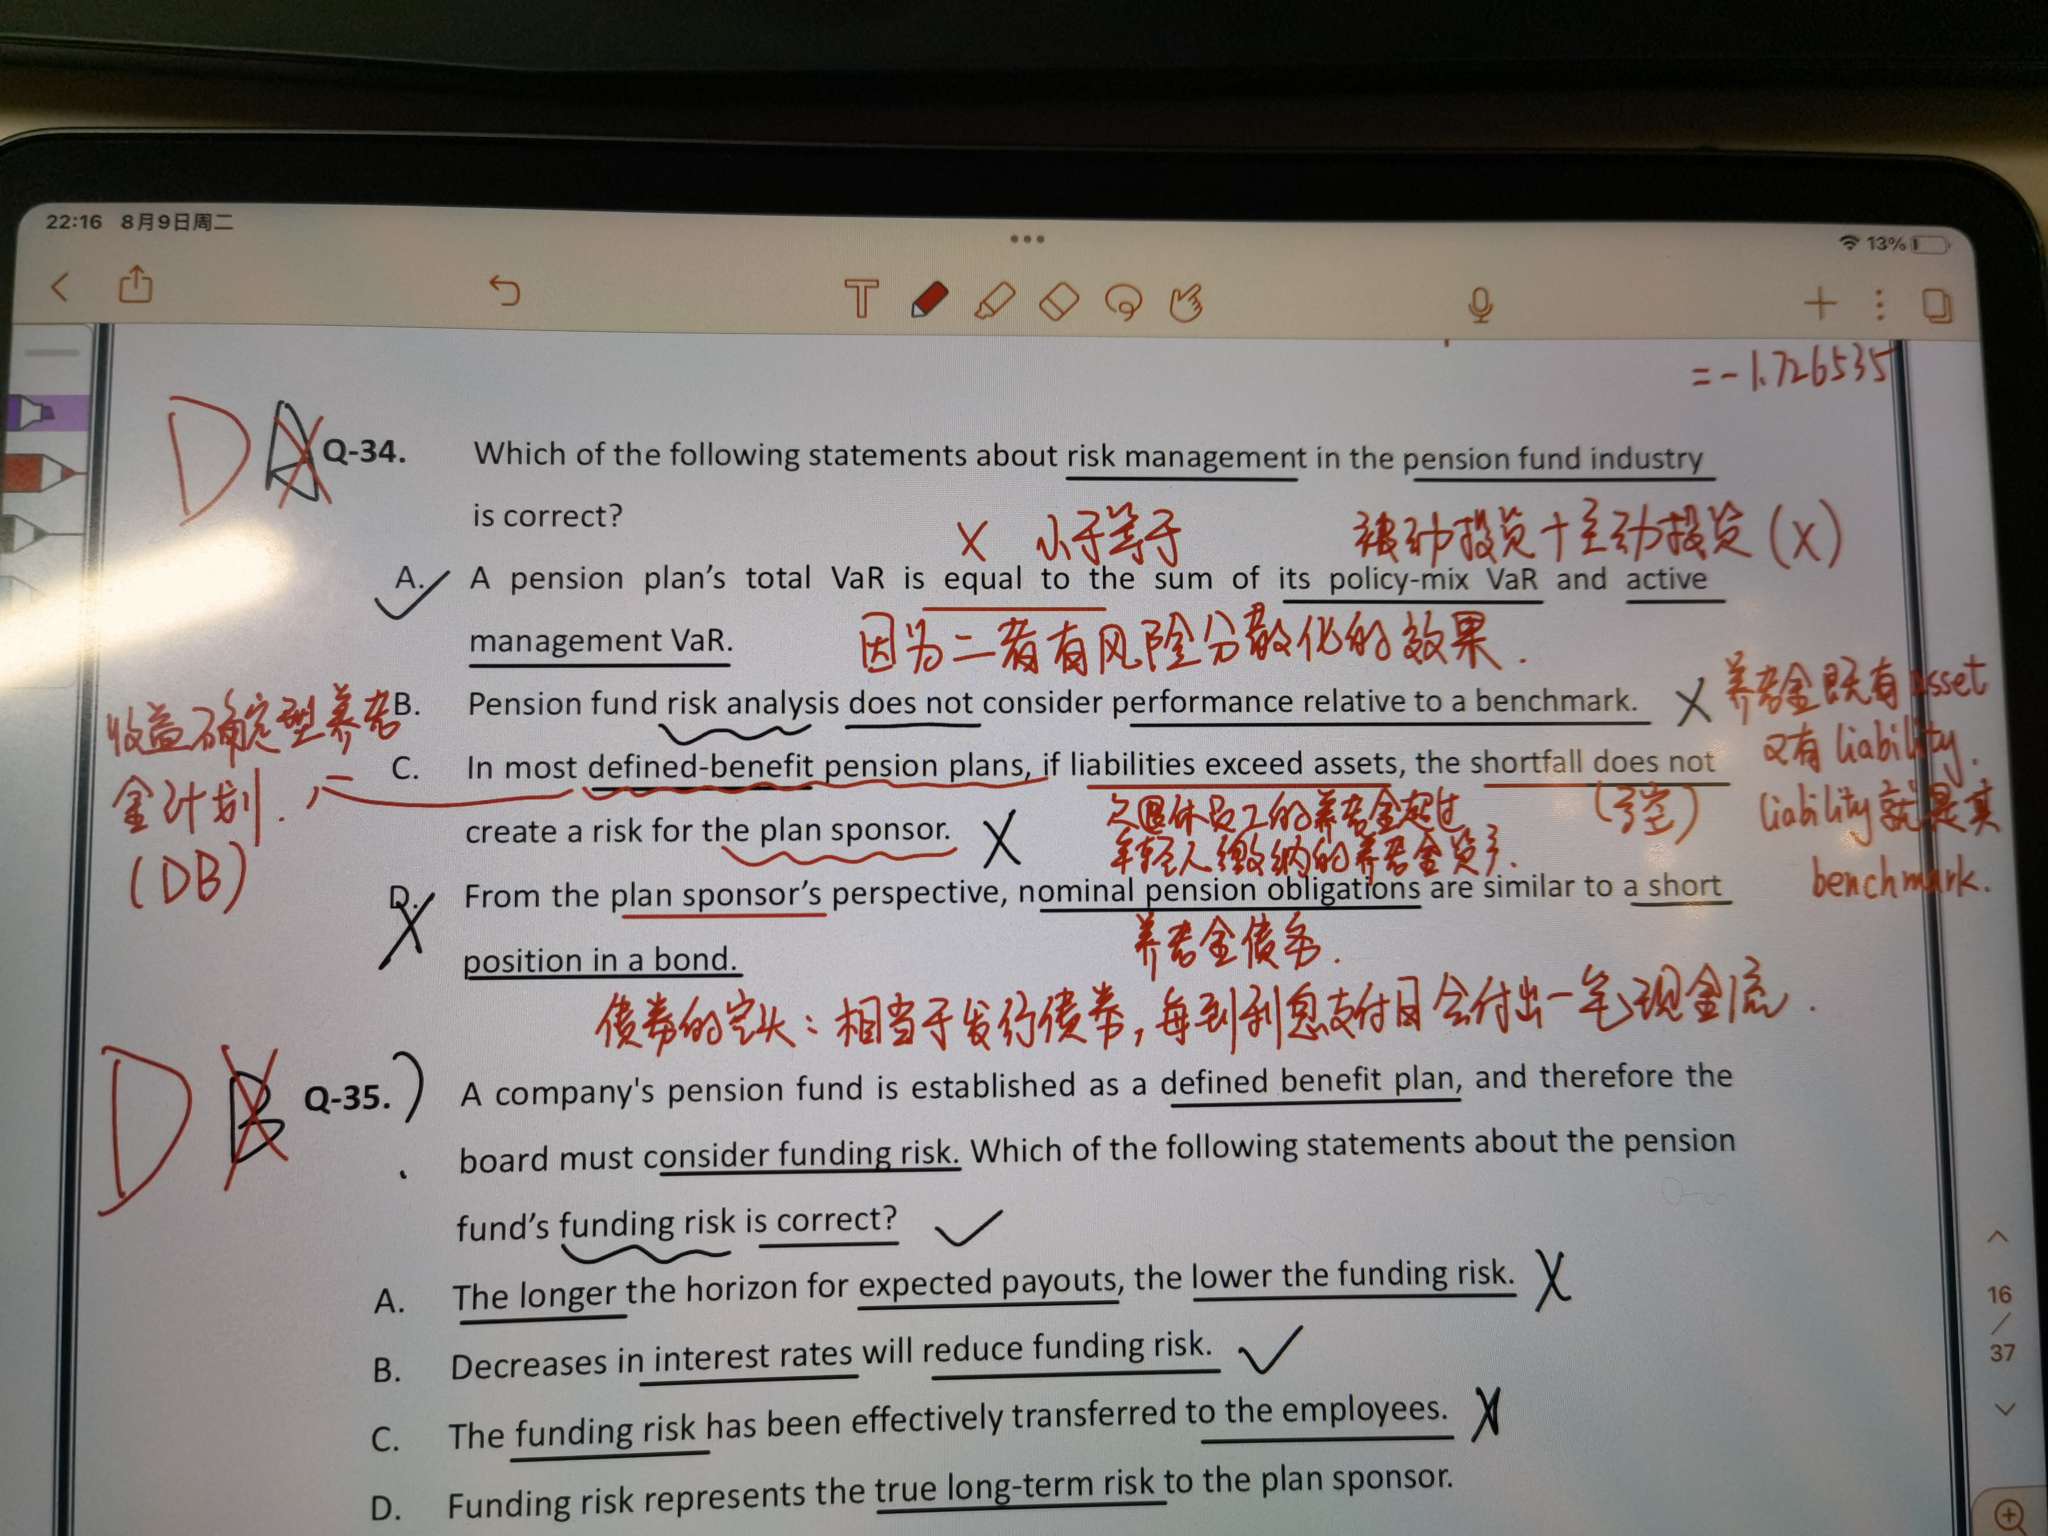 22:16 8月9日周二
13%
= -1.726535
D A Q-34. Which of the following statements about risk management in the pension fund industry
is correct?
X 小于等于 被动投资+主动投资(X)
A. A pension plan's total VaR is equal to the sum of its policy-mix VaR and active
management VaR.
因为二者有风险分散化的效果.
B. Pension fund risk analysis does not consider performance relative to a benchmark. X
养老金既有asset
又有liability.
liability就是其
benchmark.
收益确定型养老
金计划.
(DB)
C. In most defined-benefit pension plans, if liabilities exceed assets, the shortfall does not
create a risk for the plan sponsor. X
欠退休员工的养老金超过
年轻人缴纳的养老金资产.
D. From the plan sponsor's perspective, nominal pension obligations are similar to a short
position in a bond.
养老金债务.
债券的空头:相当于发行债券,每到利息支付日会付出一笔现金流.
D B Q-35. A company's pension fund is established as a defined benefit plan, and therefore the
board must consider funding risk. Which of the following statements about the pension
fund's funding risk is correct?
A. The longer the horizon for expected payouts, the lower the funding risk. X
B. Decreases in interest rates will reduce funding risk.
C. The funding risk has been effectively transferred to the employees. X
D. Funding risk represents the true long-term risk to the plan sponsor.
16
/
37